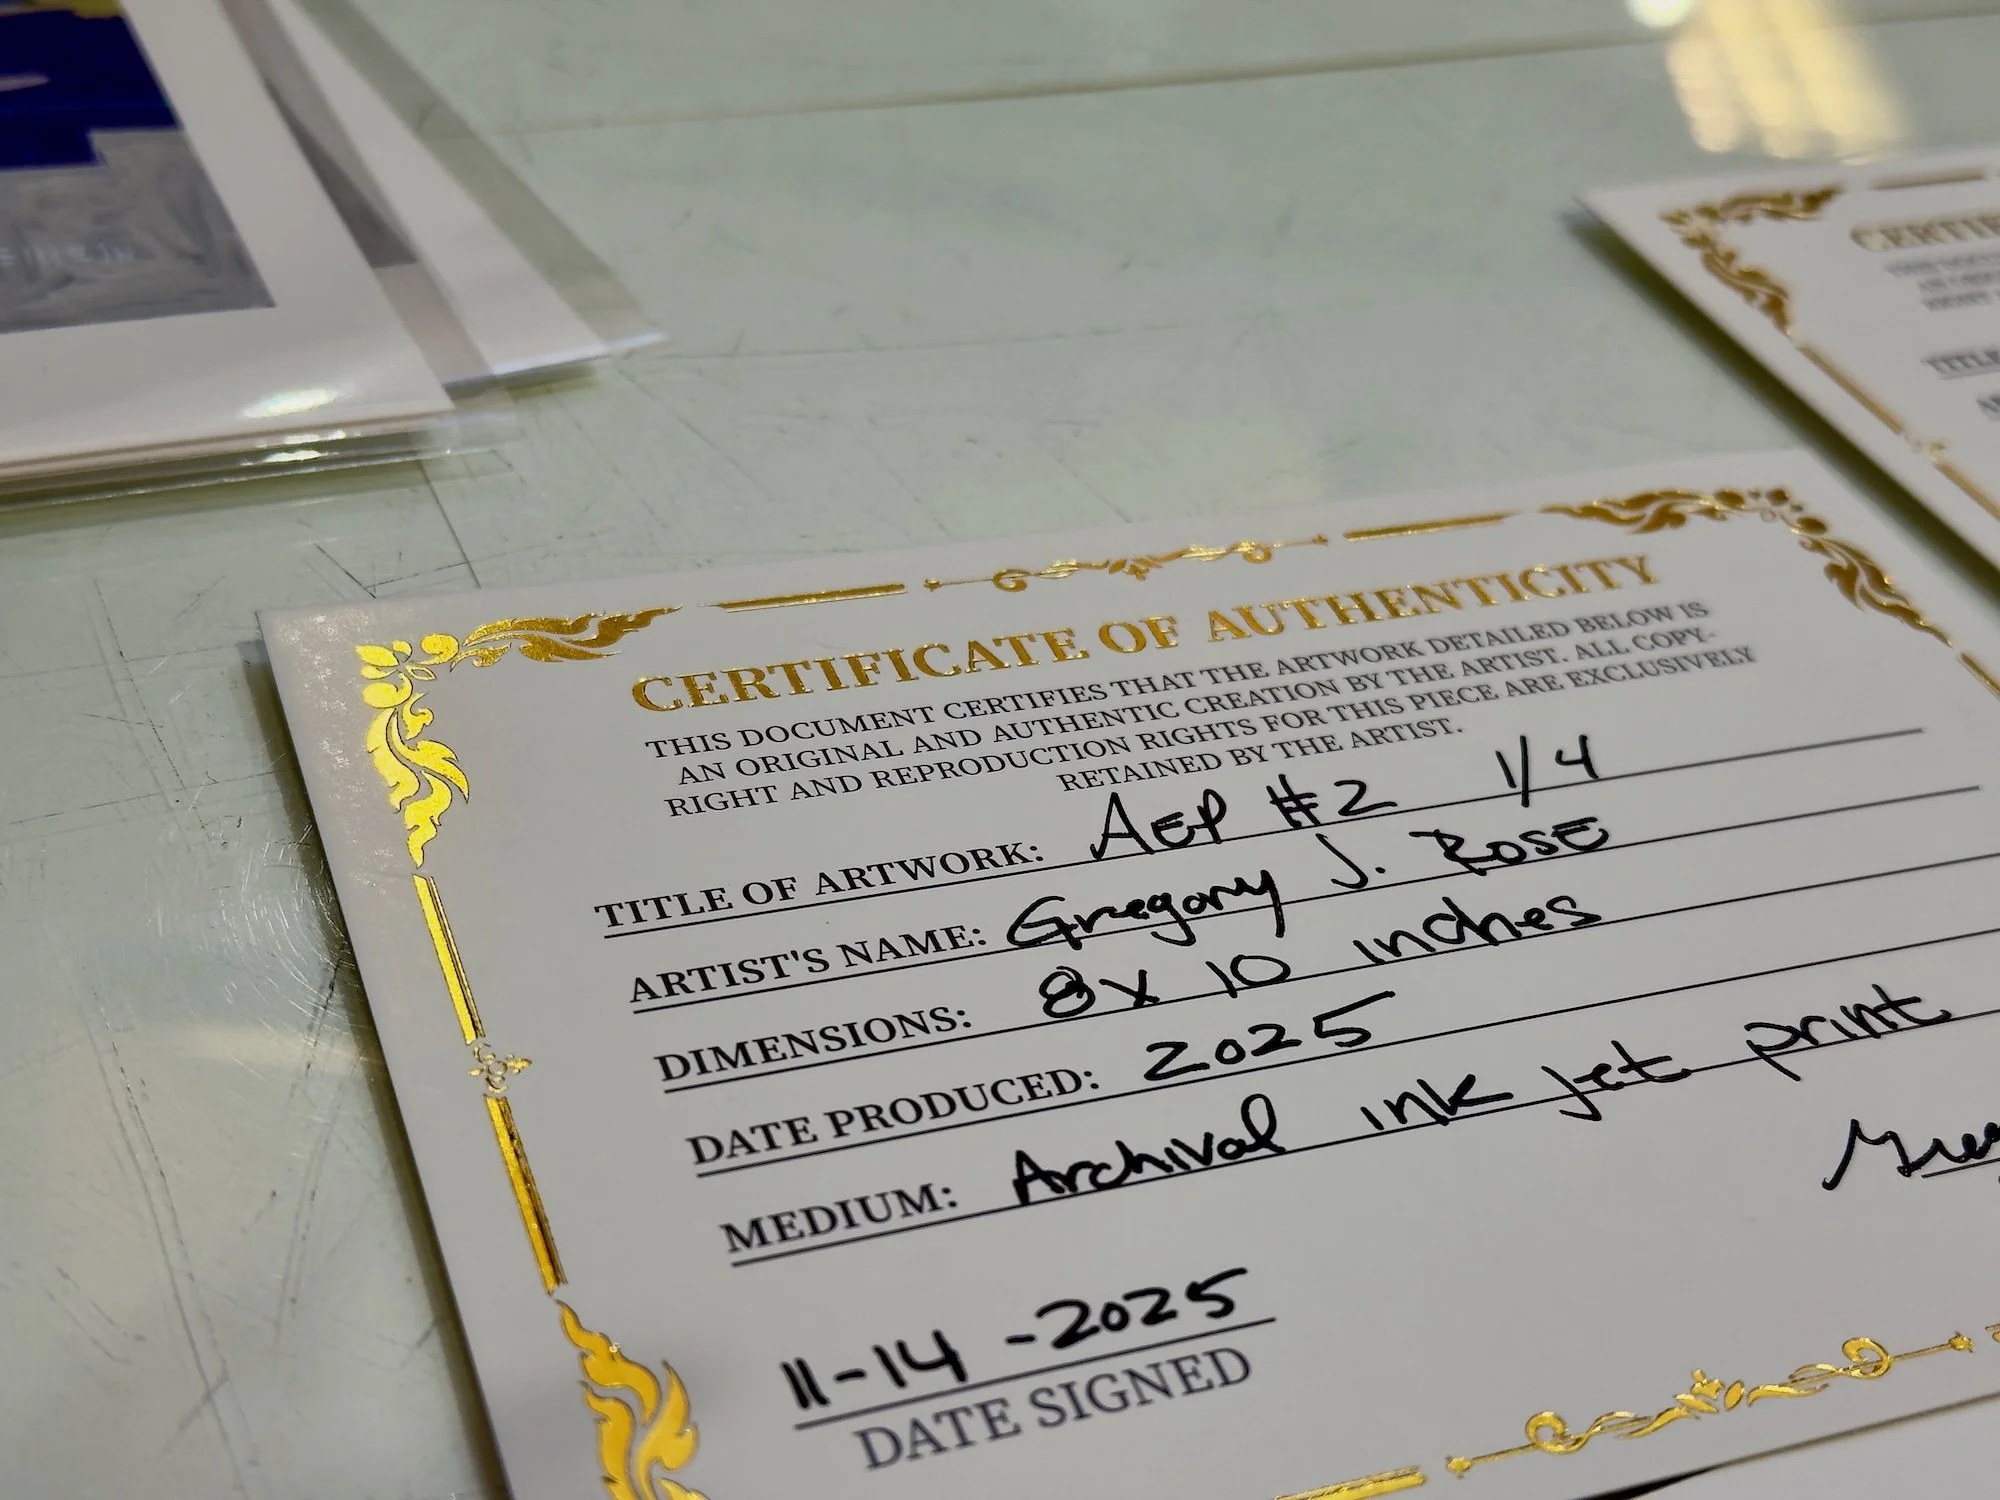 CERTIFICATE OF AUTHENTICITY
THIS DOCUMENT CERTIFIES THAT THE ARTWORK DETAILED BELOW IS
AN ORIGINAL AND AUTHENTIC CREATION BY THE ARTIST. ALL COPY-
RIGHT AND REPRODUCTION RIGHTS FOR THIS PIECE ARE EXCLUSIVELY
RETAINED BY THE ARTIST.
TITLE OF ARTWORK: AEP #2 1/4
ARTIST'S NAME: Gregory J. ROSE
DIMENSIONS: 8 x 10 inches
DATE PRODUCED: 2025
MEDIUM: Archival ink jet print
11-14-2025
DATE SIGNED